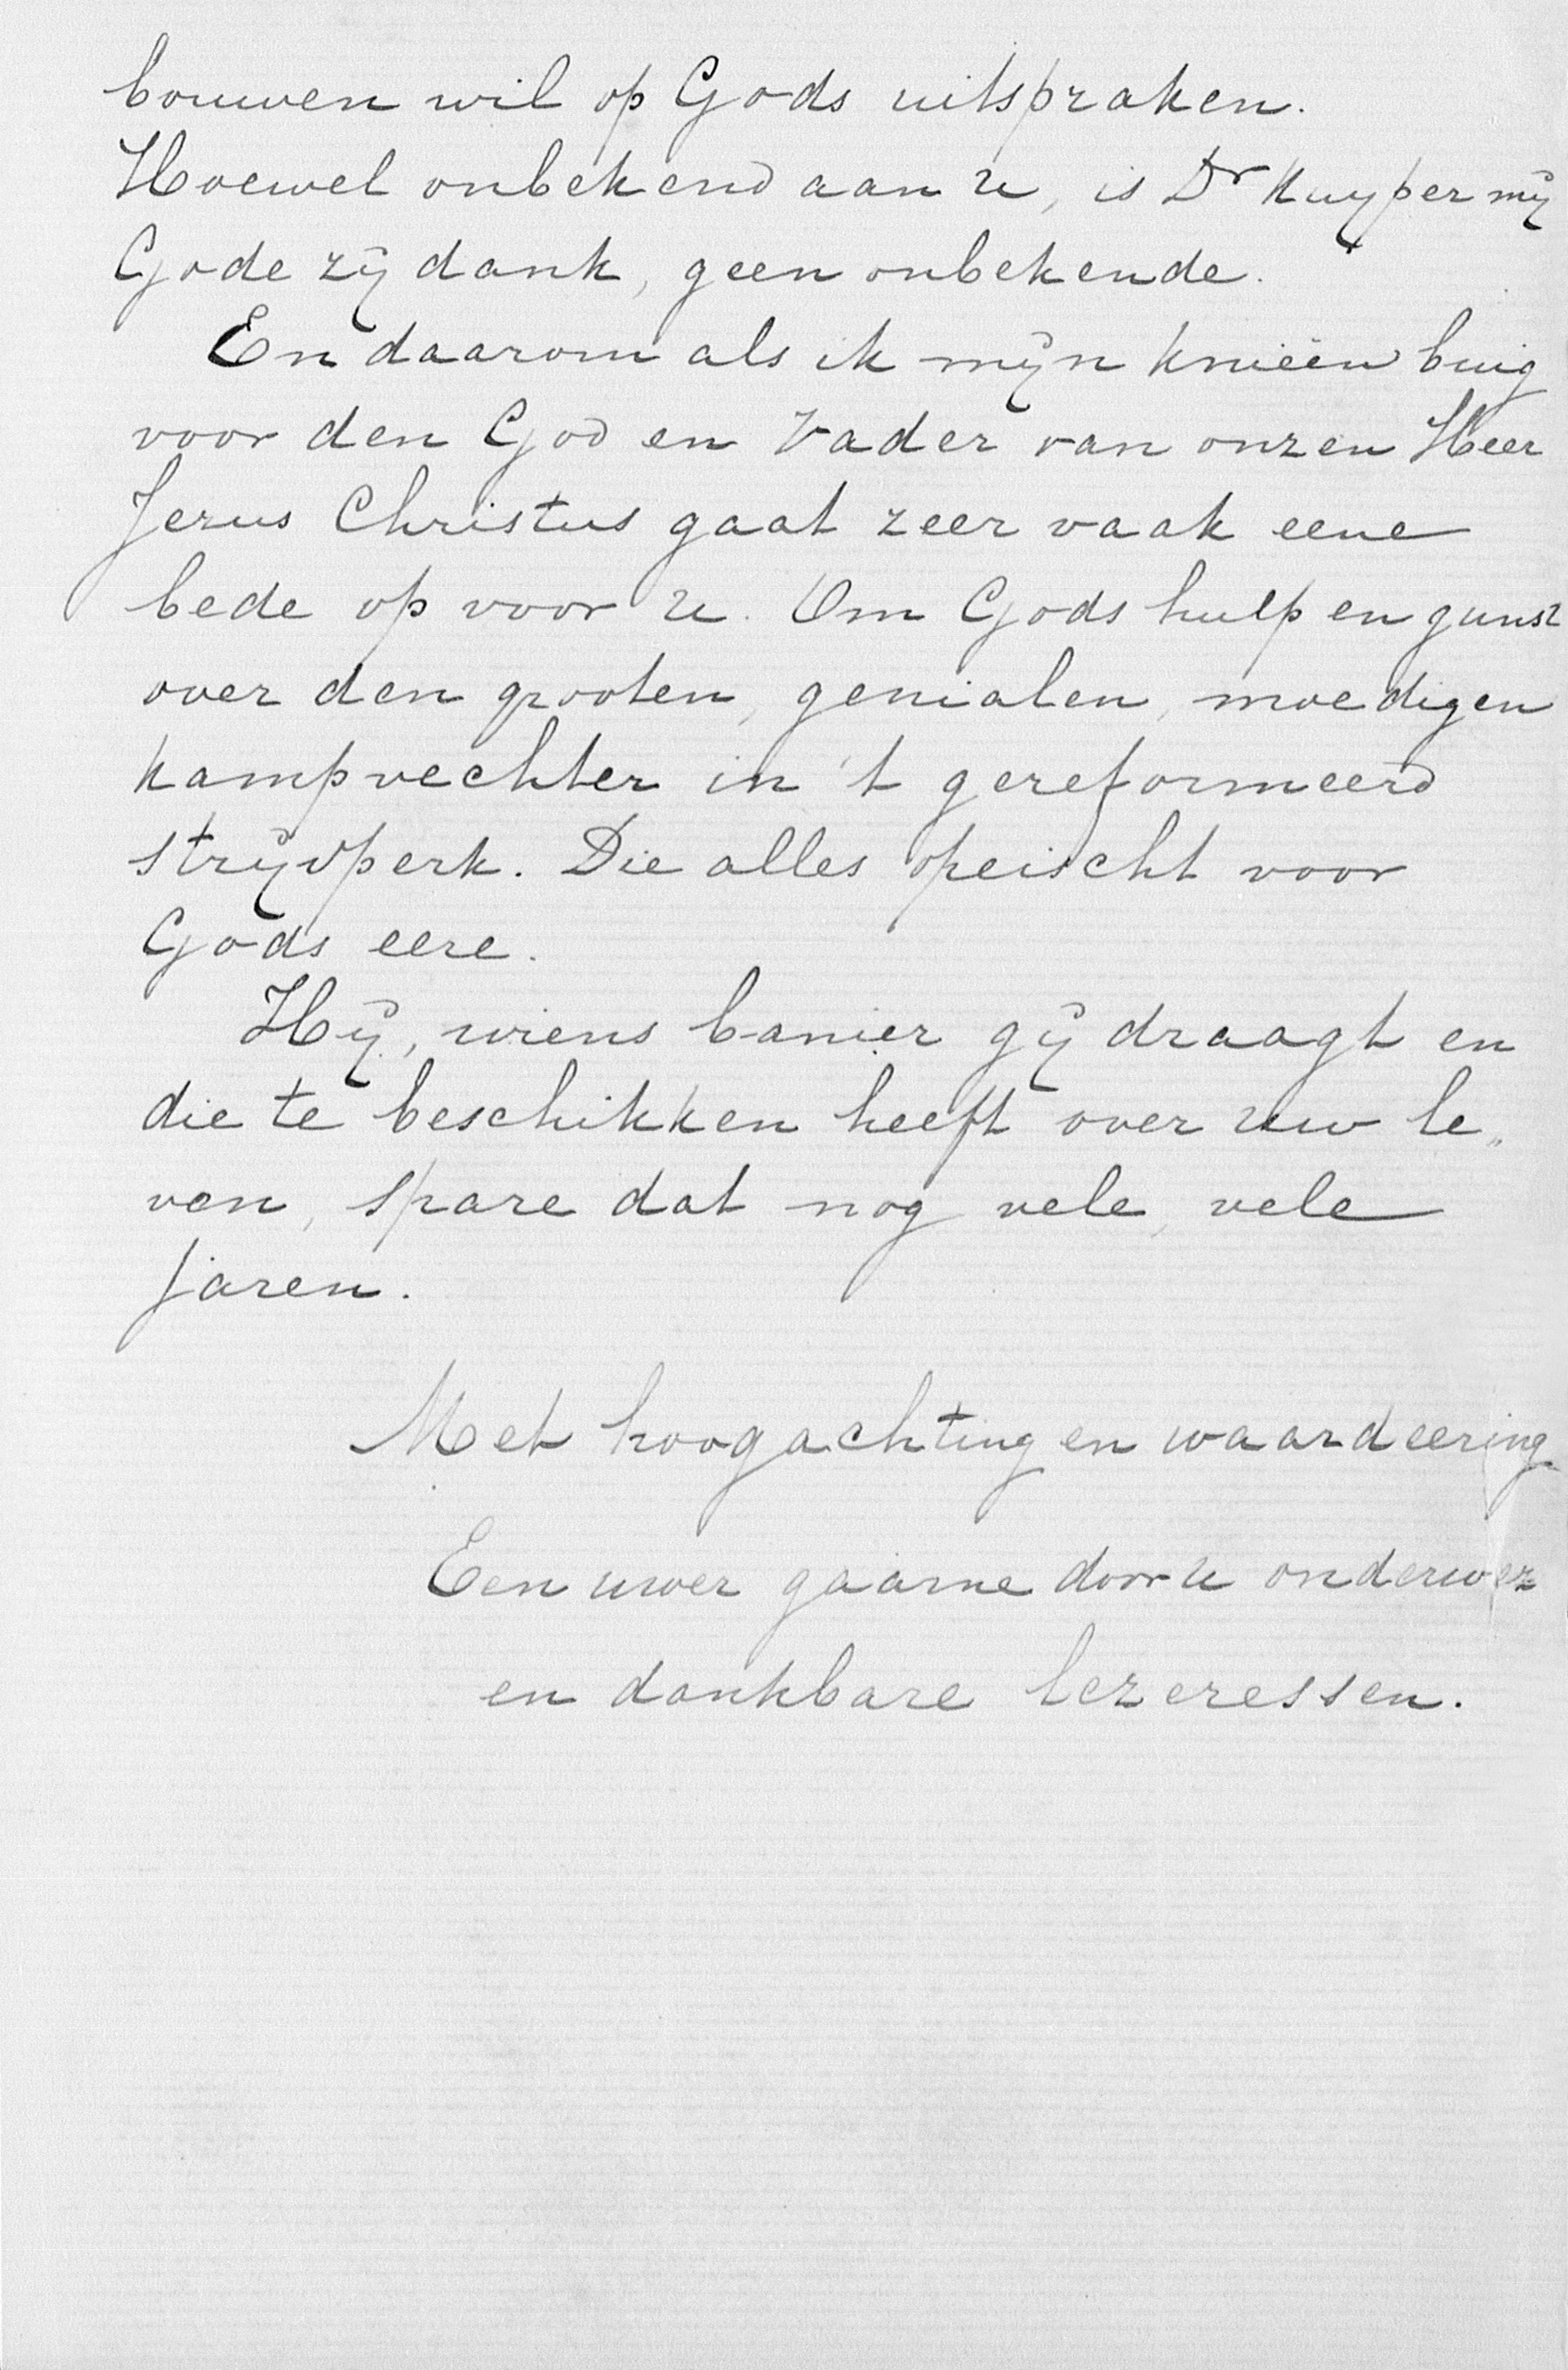 bouwen wil op Gods uitspraken.
Hoewel onbekend aan u, is Dr Kuyper mij
Gode zij dank, geen onbekende.
En daarom als ik mijn knieën buig
voor den God en Vader van onzen Heer
Jezus Christus gaat zeer vaak eene
bede op voor u. Om Gods hulp en gunst
over den grooten, genialen, moedigen
kampvechter in 't gereformeerd
strijdperk. Die alles opeischt voor
Gods eere.
Hij, wiens banier gij draagt en
die te beschikken heeft over uw le„
ven, spare dat nog vele, vele
jaren.
Met hoogachting en waardeering
Een uwer gaarne door u onderwez
en dankbare lezeressen.